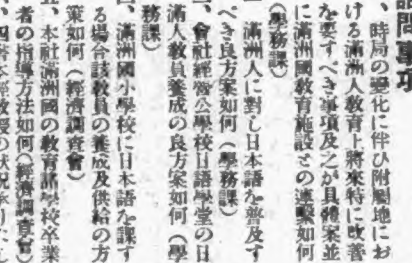 諮問事項
一、時局の變化に伴ひ附屬地にお
ける滿洲人教育上將來特に改善
を要すべき事項及之が具體案並
に滿洲國教育施設との連繫如何
(學務課)
一、滿洲人に對し日本語を普及す
べき良方案如何(學務課)
一、會社經營公學校日語學堂の日
滿人教員養成の良方案如何(學
務課)
一、滿洲國小學校に日本語を課す
る場合該教員の養成及供給の方
策如何(經濟調査會)
一、本社滿洲國の教育諸學校卒業
者の指導方法如何(經濟調査會)
教授の狀況承りたし